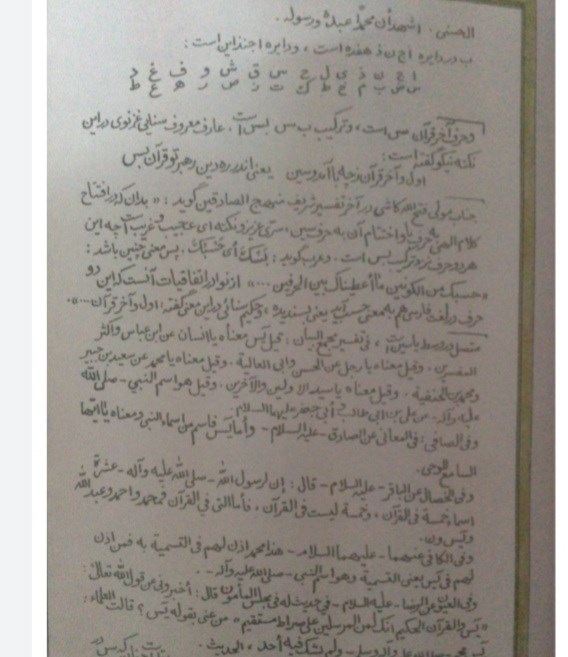 الحسنی. اشهد أن محمّدا عبده ورسوله.
ب در دایره اج ن ذ هفده است، ودایره اجنذ این است:
ا ج ن ذ ی ل ح س ق ش و ف غ د
وحرف آخر قرآن س است، وترکیب ب س بس است. عارف معروف سنایی غزنوی در این
نکته نیکو گفته است:
اول و آخر قرآن ز چه با آمد و سین یعنی اندر ره دین رهبر تو قرآن بس
جناب مولی فتح الله کاشی در آخر تفسیر شریف منهج الصادقین گوید: «بدان که در افتتاح
کلام الهی به حرف با و اختتام آن به حرف سین، سرّی عزیز و نکته ای عجیب و غریب است چه این
هر دو حرف بر ترکیب بس است. وعرب گوید: بَسُّکَ أی حَسْبُک. پس معنی چنین باشد:
«حسبک من الکونین ما أعطیناک بین الحرفین ...» از نوادر اتفاقیات آنست که این دو
حرف در لغت فارسی هم به معنی حسب است یعنی بسنده، وحکیم سنائی در این معنی گفته: اول و آخر قرآن ...».
فی تفسیر مجمع البیان: قیل یس معناه یا انسان عن ابن عباس وأکثر
المفسرین. وقیل معناه یا رجل عن الحسن وأبی العالیة. وقیل معناه یا محمد عن سعید بن جبیر
ومحمد بن الحنفیة. وقیل معناه یا سید الاولین والآخرین. وقیل هو اسم النبی - صلی الله
علیه وآله - عن علی بن ابی طالب وأبی جعفر علیهما السلام
وفی الصافی: فی المعانی عن الصادق - علیه السلام - وأما یس فاسم من اسماء النبی ومعناه یا ایّها
السامع الوحی.
وفی الخصال عن الباقر - علیه السلام - قال: إن لرسول الله - صلی الله علیه وآله - عشرة
اسماء خمسة فی القرآن، وخمسة لیست فی القرآن، فأما التی فی القرآن فمحمد واحمد وعبد الله
ویس ون.
وفی الکافی عنهما - علیهما السلام - هذا محمد اذن لهم فی التسمیة به فمن اذن
لهم فی یس یعنی التسمیة وهو اسم النبی - صلی الله علیه وآله -.
وفی العیون عن الرضا - علیه السلام - فی حدیث له فی مجلس المأمون قال: أخبرونی عن قول الله تعالی:
«یس والقرآن الحکیم انک لمن المرسلین علی صراط مستقیم» من عنی بقوله یس؟ قالت العلماء:
یس محمد صلی الله علیه وآله وسلم - ولم یشک فیه أحد، الحدیث.